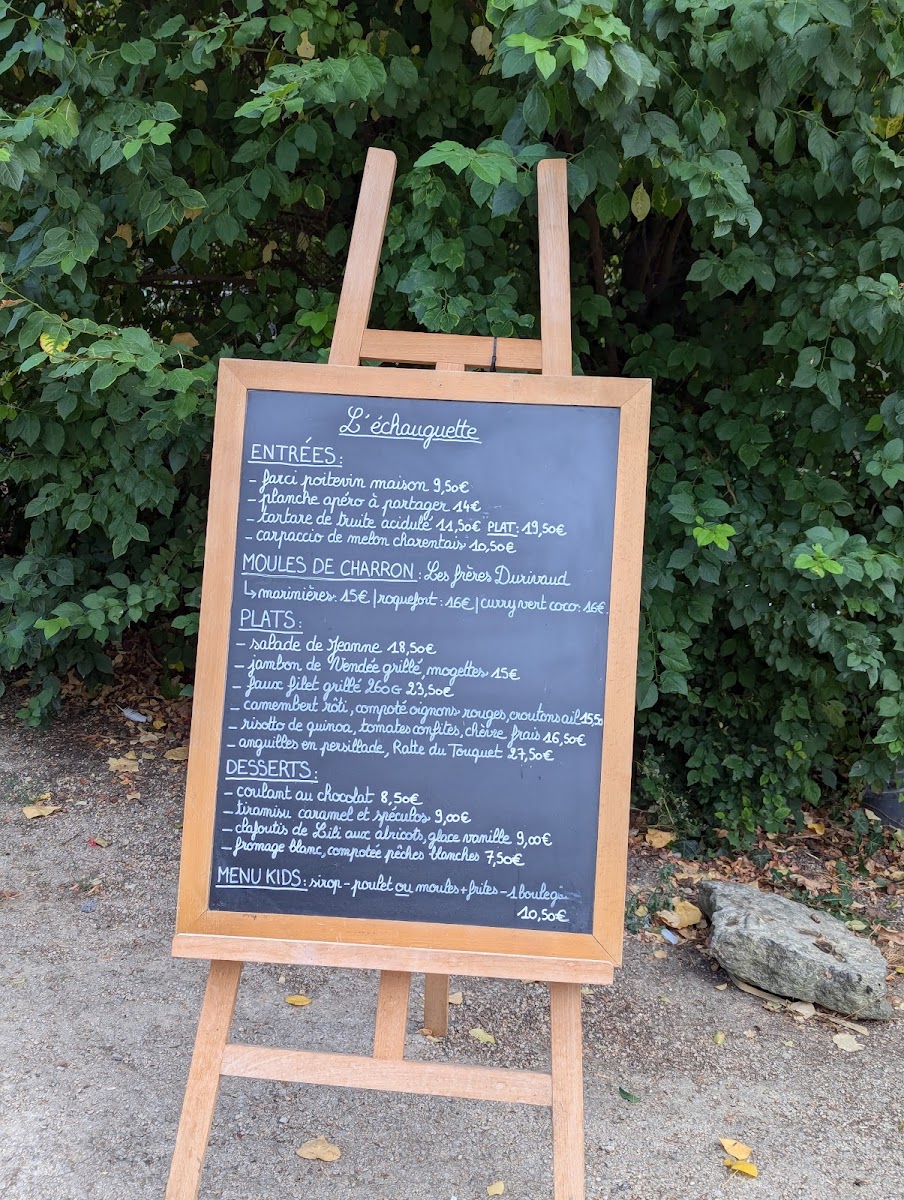 L'échauguette
ENTRÉES:
- farci poitevin maison 9,50€
- planche apéro à partager 14€
- tartare de truite acidulé 11,50€ PLAT: 19,50€
- carpaccio de melon charentais 10,50€
MOULES DE CHARRON: Les frères Durivaud
↳ marinières: 15€ | roquefort: 16€ | curry vert coco: 16€
PLATS:
- salade de Jeanne 18,50€
- jambon de Vendée grillé, mogettes 15€
- faux filet grillé 260G 23,50€
- camembert rôti, compoté oignons rouges, croutons ail 15,5
- risotto de quinoa, tomates confites, chèvre frais 16,50€
- anguilles en persillade, Ratte du Touquet 27,50€
DESSERTS:
- coulant au chocolat 8,50€
- tiramisu caramel et spéculos 9,00€
- clafoutis de Lili aux abricots, glace vanille 9,00€
- fromage blanc, compotée pêches blanches 7,50€
MENU KIDS: sirop - poulet ou moules + frites - 1 boule
10,50€